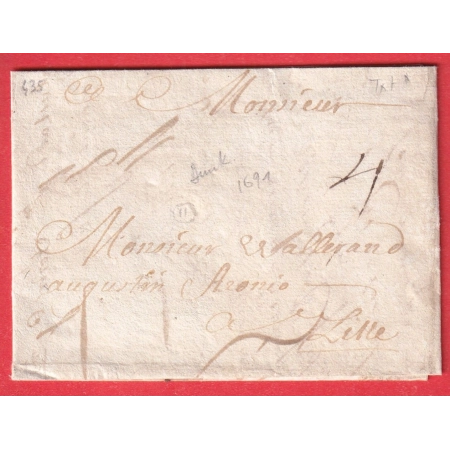 435
Monsieur
Dunk
1691
4
11
Monsieur Wallerand
augustin Aronio
A Lille